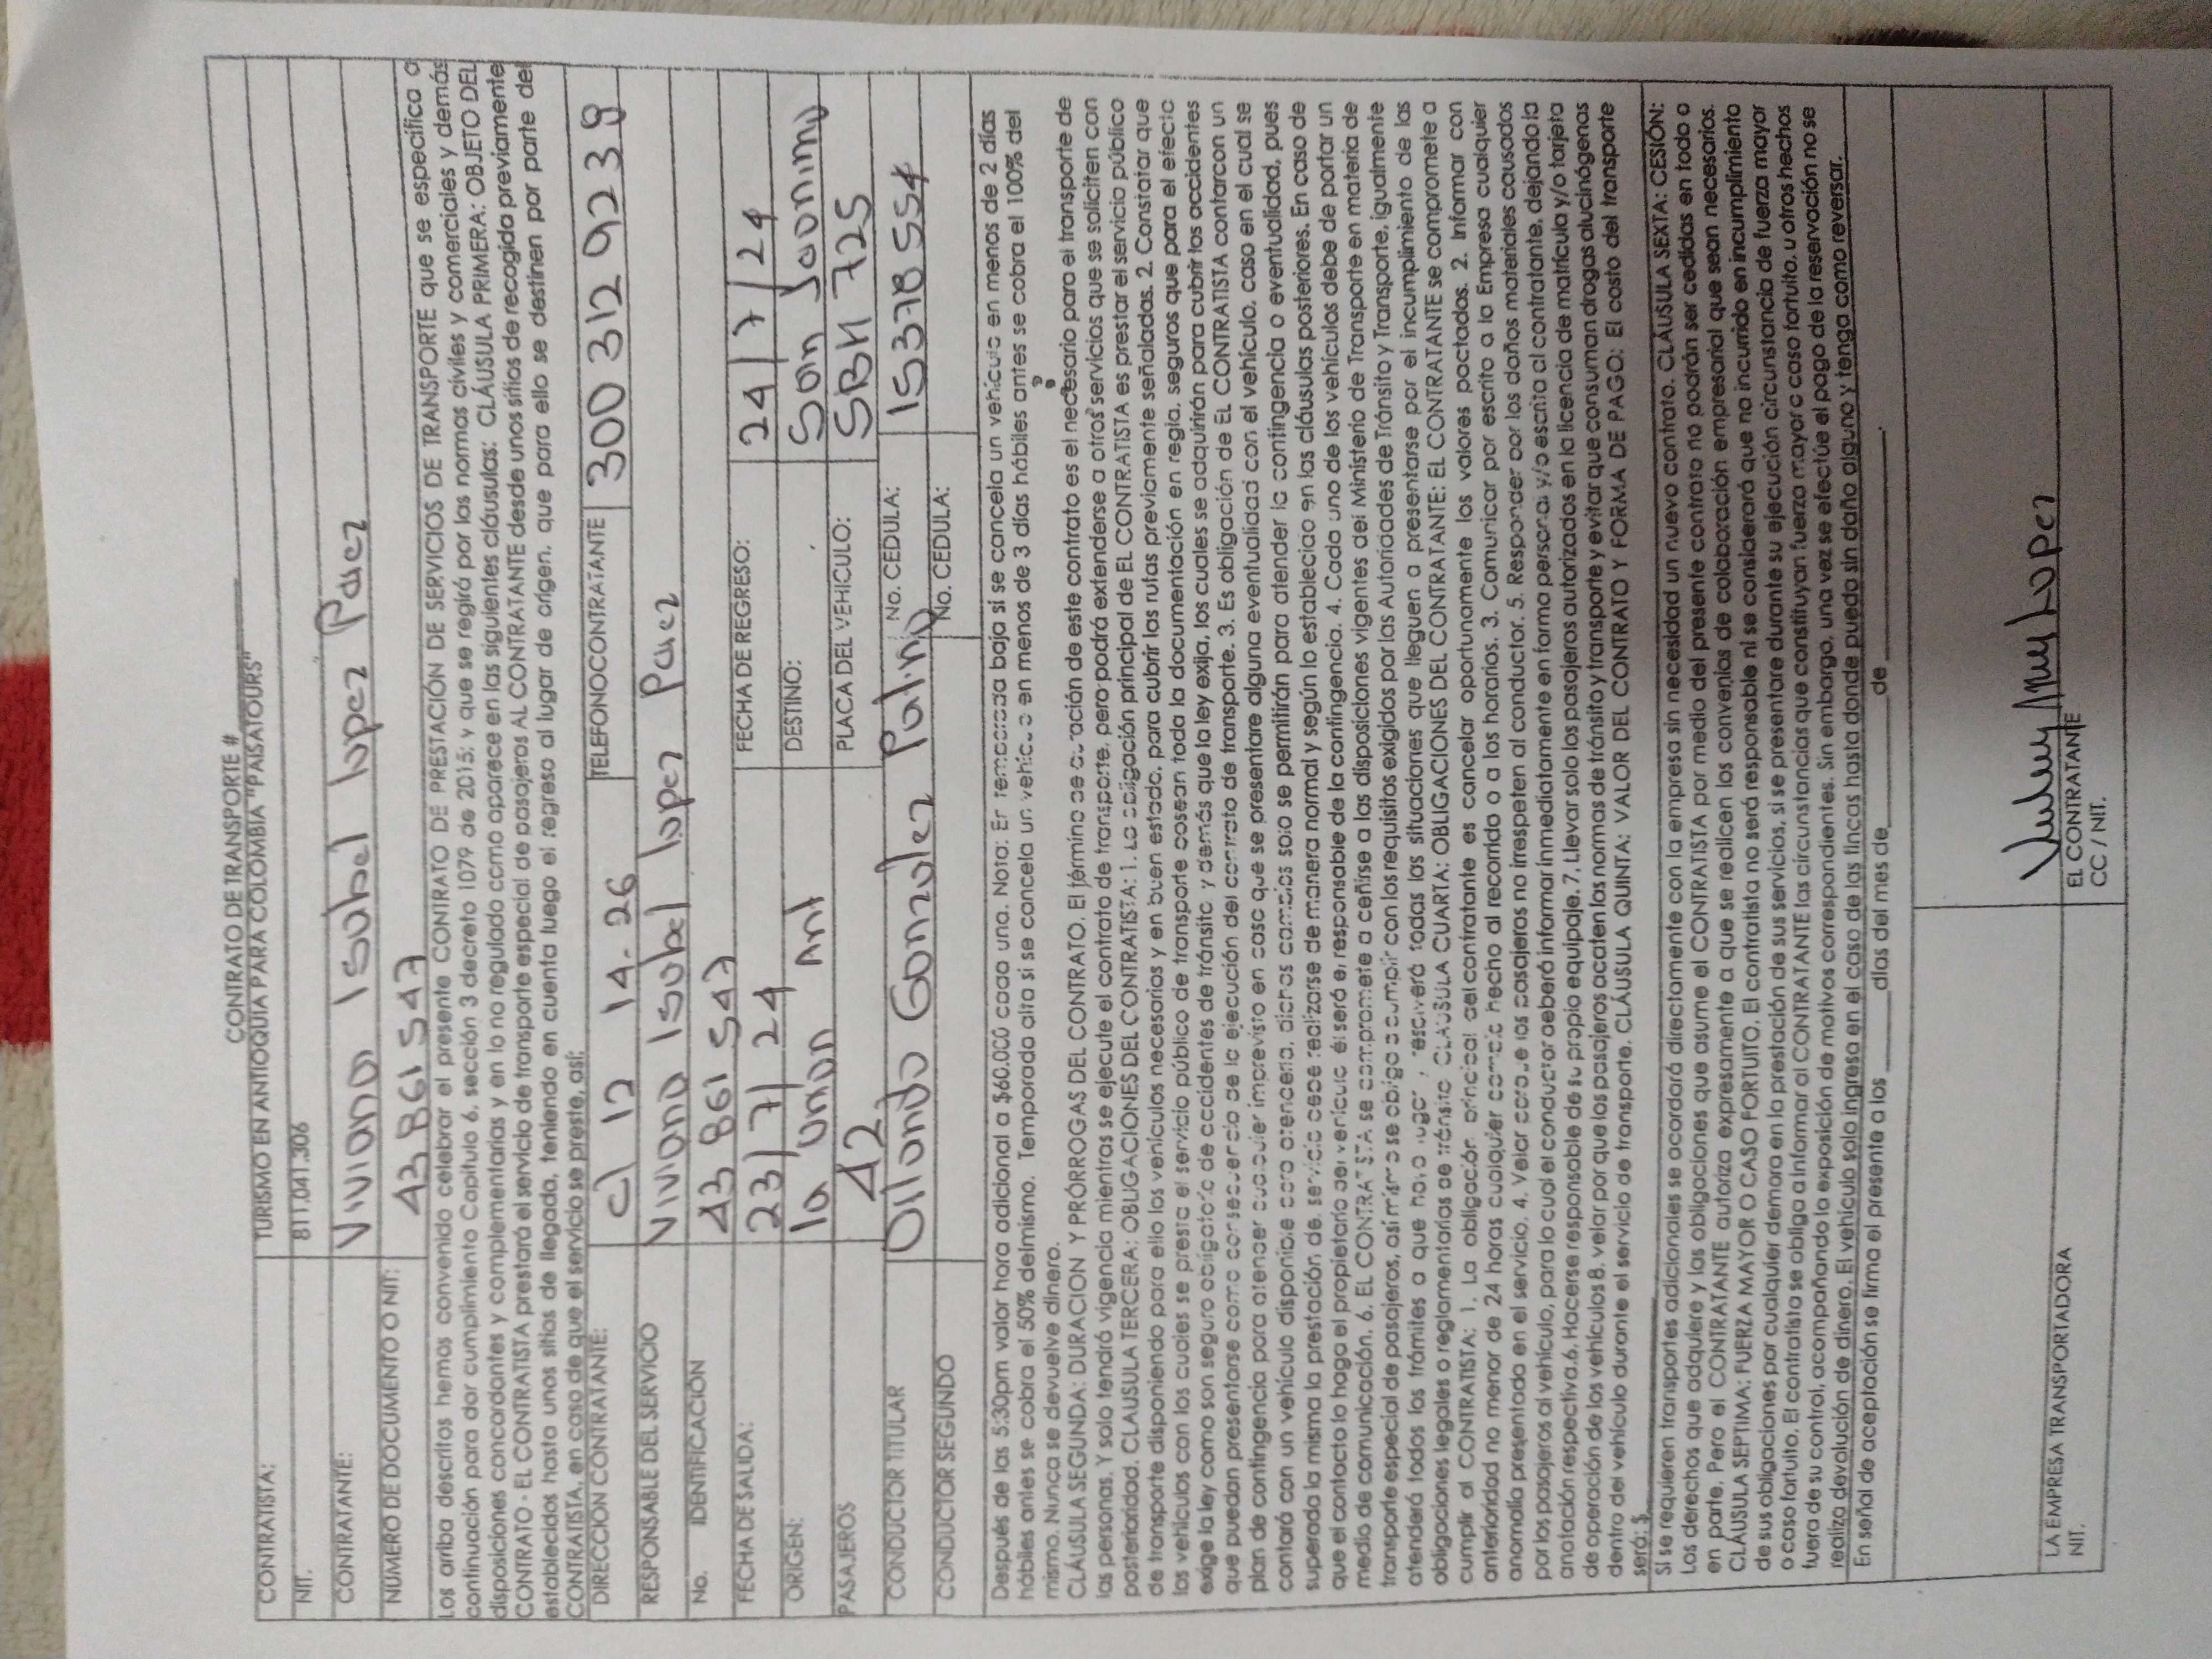 CONTRATO DE TRANSPORTE #
CONTRATISTA: TURISMO EN ANTIOQUIA PARA COLOMBIA "PAISATOURS"
NIT. 811.041.306
CONTRATANTE: Viviana Isabel lopez Paez
NUMERO DE DOCUMENTO O NIT: 43 861 547
Los arriba descritos hemos convenido celebrar el presente CONTRATO DE PRESTACIÓN DE SERVICIOS DE TRANSPORTE que se especifica a
continuación para dar cumplimiento Capitulo 6, sección 3 decreto 1079 de 2015; y que se regirá por las normas civiles y comerciales y demás
disposiciones concordantes y complementarias y en lo no regulado como aparece en las siguientes cláusulas: CLÁUSULA PRIMERA: OBJETO DEL
CONTRATO - EL CONTRATISTA prestará el servicio de transporte especial de pasajeros AL CONTRATANTE desde unos sitios de recogida previamente
establecidos hasta unos sitios de llegada, teniendo en cuenta luego el regreso al lugar de origen, que para ello se destinen por parte del
CONTRATISTA, en caso de que el servicio se preste, así:
DIRECCION CONTRATANTE: cl 12 14-26 TELEFONO CONTRATANTE 300 312 9238
RESPONSABLE DEL SERVICIO Viviana Isabel lopez Paez
No. IDENTIFICACION 43 861 547
FECHA DE SALIDA: 23/7/24 FECHA DE REGRESO: 24/7/24
ORIGEN: la union Ant DESTINO: San Jeronimo
PASAJEROS 42 PLACA DEL VEHICULO: SBH 725
CONDUCTOR TITULAR Gonzalez Patiño No. CEDULA: 15378554
CONDUCTOR SEGUNDO No. CEDULA:
Después de las 5:30pm valor hora adicional a $60.000 cada una. Nota: En temporada baja si se cancela un vehículo en menos de 2 días
hábiles antes se cobra el 50% del mismo. Temporada alta si se cancela un vehículo en menos de 3 días hábiles antes se cobra el 100% del
mismo. Nunca se devuelve dinero.
CLÁUSULA SEGUNDA: DURACION Y PRÓRROGAS DEL CONTRATO. El término de duración de este contrato es el necesario para el transporte de
las personas. Y solo tendrá vigencia mientras se ejecute el contrato de transporte, pero podrá extenderse a otros servicios que se soliciten con
posterioridad. CLAUSULA TERCERA: OBLIGACIONES DEL CONTRATISTA: 1. La obligación principal de EL CONTRATISTA es prestar el servicio público
de transporte disponiendo para ello los vehículos necesarios y en buen estado, para cubrir las rutas previamente señaladas. 2. Constatar que
los vehículos con los cuales se presta el servicio público de transporte posean toda la documentación en regla, seguros que para el efecto
exige la ley como son seguro obligatorio de accidentes de tránsito, y demás que la ley exija, los cuales se adquirirán para cubrir los accidentes
que puedan presentarse como consecuencia de la ejecución del contrato de transporte. 3. Es obligación de EL CONTRATISTA contar con un
plan de contingencia para atender cualquier imprevisto en caso que se presentare alguna eventualidad con el vehículo, caso en el cual se
contará con un vehículo disponible para atenderla, dichos cambios solo se permitirán para atender la contingencia o eventualidad, pues
superada la misma la prestación del servicio debe realizarse de manera normal y según lo establecido en las cláusulas posteriores. En caso de
que el contacto lo haga el propietario del vehículo él será el responsable de la contingencia. 4. Cada uno de los vehículos debe de portar un
medio de comunicación. 6. EL CONTRATISTA se compromete a ceñirse a las disposiciones vigentes del Ministerio de Transporte en materia de
transporte especial de pasajeros, así mismo se obliga a cumplir con los requisitos exigidos por las Autoridades de Tránsito y Transporte, igualmente
atenderá todos los trámites a que haya lugar y resolverá todas las situaciones que lleguen a presentarse por el incumplimiento de las
obligaciones legales o reglamentarias de tránsito. CLAUSULA CUARTA: OBLIGACIONES DEL CONTRATANTE: EL CONTRATANTE se compromete a
cumplir al CONTRATISTA: 1. La obligación principal del contratante es cancelar oportunamente los valores pactados. 2. Informar con
anterioridad no menor de 24 horas cualquier cambio hecho al recorrido o a los horarios. 3. Comunicar por escrito a la Empresa cualquier
anomalía presentada en el servicio. 4. Velar porque los pasajeros no irrespeten al conductor. 5. Responder por los daños materiales causados
por los pasajeros al vehículo, para lo cual el conductor deberá informar inmediatamente en forma personal y/o escrita al contratante, dejando la
anotación respectiva. 6. Hacerse responsable de su propio equipaje. 7. Llevar solo los pasajeros autorizados en la licencia de matrícula y/o tarjeta
de operación de los vehículos 8. velar por que los pasajeros acaten las normas de tránsito y transporte y evitar que consuman drogas alucinógenas
dentro del vehículo durante el servicio de transporte. CLÁUSULA QUINTA: VALOR DEL CONTRATO Y FORMA DE PAGO: El costo del transporte
será: $
Si se requieren transportes adicionales se acordará directamente con la empresa sin necesidad un nuevo contrato. CLÁUSULA SEXTA: CESIÓN:
Los derechos que adquiere y las obligaciones que asume el CONTRATISTA por medio del presente contrato no podrán ser cedidas en todo o
en parte. Pero el CONTRATANTE autoriza expresamente a que se realicen los convenios de colaboración empresarial que sean necesarios.
CLÁUSULA SEPTIMA: FUERZA MAYOR O CASO FORTUITO. El contratista no será responsable ni se considerará que ha incurrido en incumplimiento
de sus obligaciones por cualquier demora en la prestación de sus servicios, si se presentare durante su ejecución circunstancia de fuerza mayor
o caso fortuito. El contratista se obliga a Informar al CONTRATANTE las circunstancias que constituyan fuerza mayor o caso fortuito, u otros hechos
fuera de su control, acompañando la exposición de motivos correspondientes. Sin embargo, una vez se efectúe el pago de la reservación no se
realiza devolución de dinero. El vehículo solo ingresa en el caso de las fincas hasta donde pueda sin daño alguno y tenga como reversar.
En señal de aceptación se firma el presente a los ______ días del mes de ______ de ______.
LA EMPRESA TRANSPORTADORA EL CONTRATANE
NIT. CC / NIT.